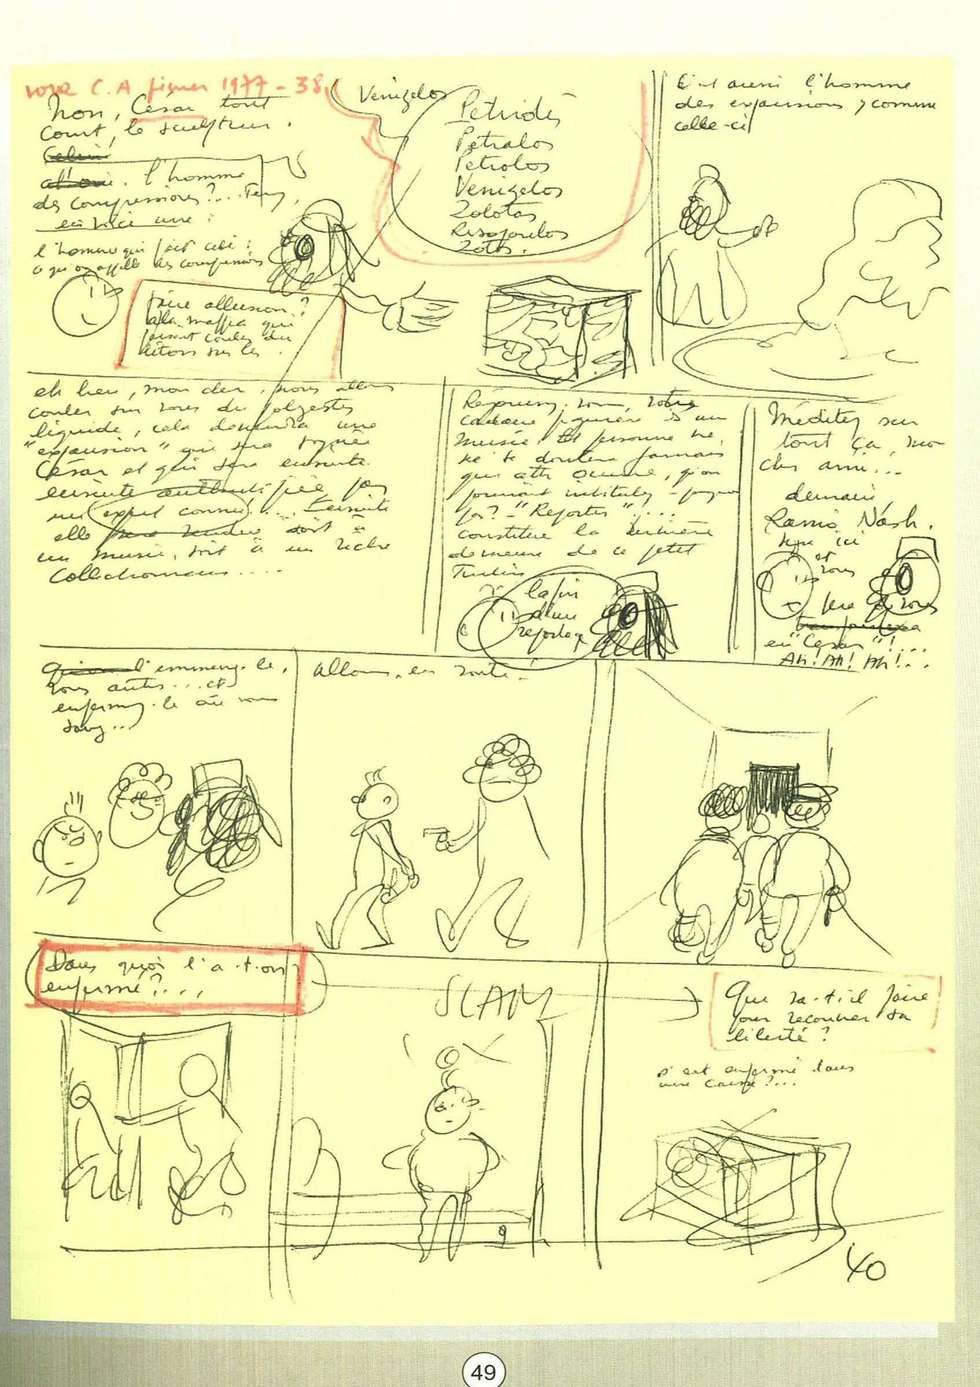 voir C.A février 1977 - 38
Non, César tout
court, le sculpteur.
l'homme
des compressions?... Tenez,
en voici une :
l'homme qui fait cela :
ce qu'on appelle des compressions
Venizelos
Petridès
Petralos
Petrolos
Venizelos
Zolotas
Zotos.
C'est aussi l'homme
des expansions, comme
celle-ci
faire allusion?
à la maffia qui
faisant couler du
béton sur les
eh bien, mon cher, nous allons
couler sur vous du polyester
liquide, cela deviendra une
"expansion" qui sera signée
César et qui sera ensuite
authentifiée par
un expert connu!... Ensuite
elle sera vendue soit à
un musée, soit à un riche
collectionneur....
Réjouissez-vous, votre
cadavre figurera ds un
musée. Et personne ne
se doutera jamais
que cette œuvre, qu'on
pourrait intituler - pourquoi
pas? - "Reporter"!...
constitue la dernière
demeure de ce petit
Tintin
la fin
d'un
reportage
Méditez sur
tout ça, mon
cher ami...
demain,
Ramo Nash.
ici
et
vous
en "César"!...
Ah! Ah! Ah!...
l'emmenez-le,
vous autres... et
enfermez-le où vous
savez...
allons, en route!
Dans quoi l'a-t-on
enfermé?...
SLAM
Que va-t-il faire
pour recouvrer sa
liberté?
s'est enfermé dans
une caisse?...
40
49